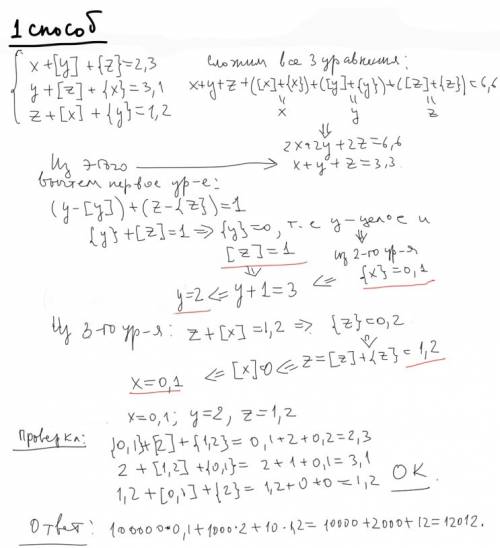 1 способ
x+[y]+{z}=2,3
y+[z]+{x}=3,1
z+[x]+{y}=1,2
Сложим все 3 уравнения:
x+y+z+([x]+{x})+([y]+{y})+([z]+{z})=6,6
x y z
⇓
2x+2y+2z=6,6
Из этого → x+y+z=3,3
вычтем первое ур-е:
(y-[y])+(z-{z})=1
{y}+[z]=1 ⇒ {y}=0, т.е y-целое и
[z]=1
из 2-го ур-я
y=2 ⇐ y+1=3 ⇐ {x}=0,1
Из 3-го ур-я: z+[x]=1,2 ⇒ {z}=0,2
x=0,1 ⇐ [x]=0 ⇐ z=[z]+{z}=1,2
x=0,1; y=2, z=1,2
Проверка: {0,1}+[2]+{1,2}= 0,1+2+0,2=2,3
2+[1,2]+{0,1}= 2+1+0,1=3,1
1,2+[0,1]+{2}=1,2+0+0=1,2 OK.
Ответ: 100000•0,1+1000•2+10•1,2=10000+2000+12=12012.